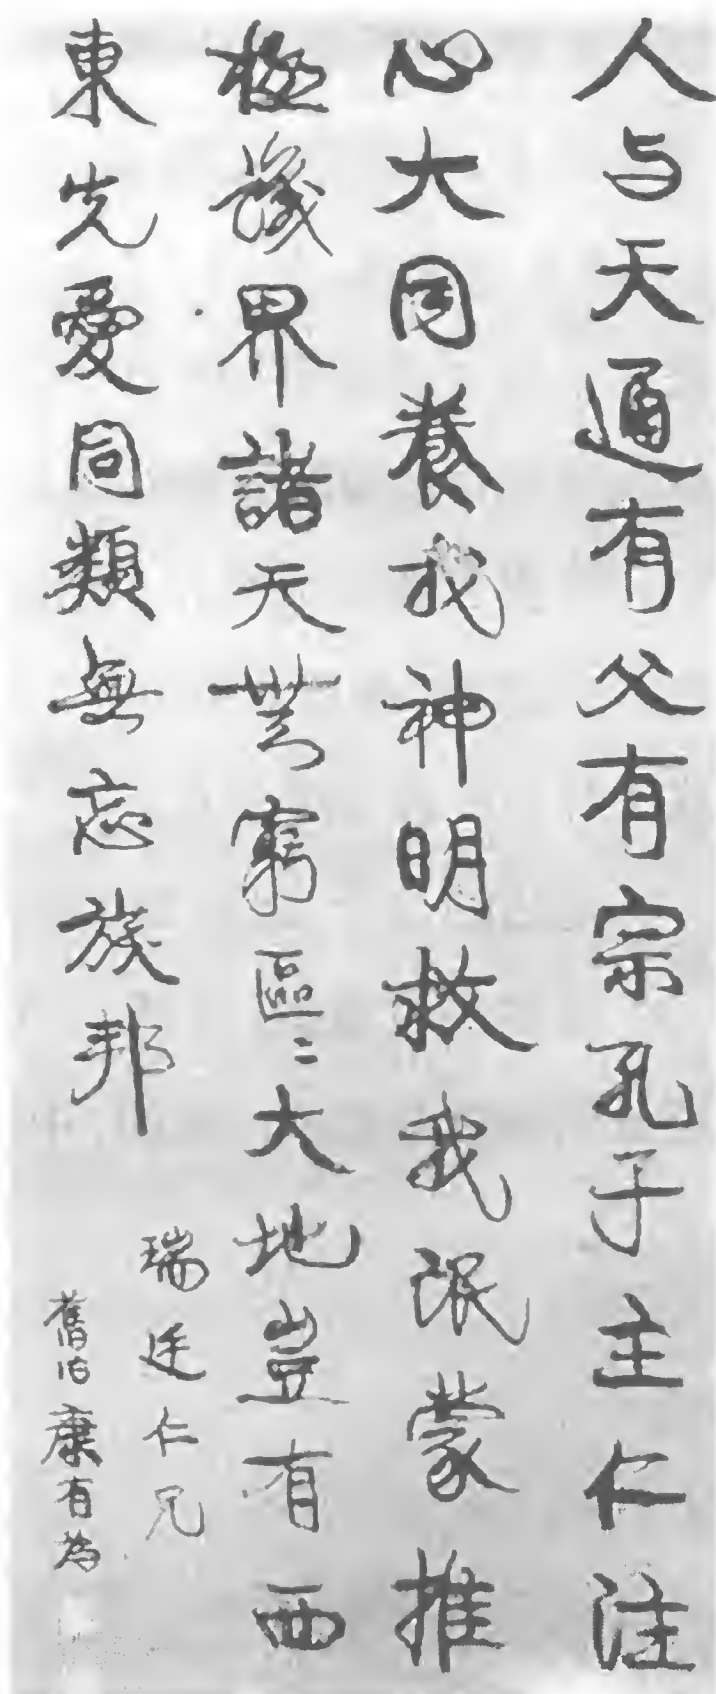 人与天通有父有宗孔子主仁注
心大同養我神明救我氓蒙推
極議界諸天無窮區〻大地豈有西
東先愛同類無忘族邦
瑞廷仁兄
康有為